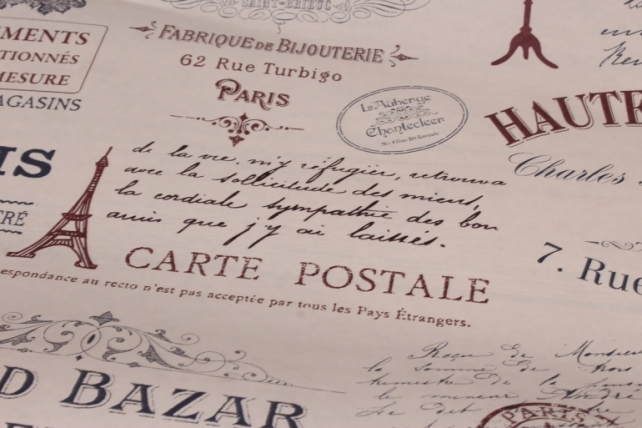 SAINT-BRIEUC
EMENTS
TIONNÉS
MESURE
MAGASINS
FABRIQUE DE BIJOUTERIE
62 Rue Turbigo
PARIS
L'Auberge
Chantecleer
HAUTE
Charles
IS
de la vie, m'y réfugier, retrouva
avec la sollicitude des miens,
la cordiale sympathie des bon
amis que j'y ai laissés.
CARTE POSTALE
espondance au recto n'est pas acceptée par tous les Pays Étrangers.
7. Rue
D BAZAR
Reçu de Monsieur
la somme de trois
PARIS